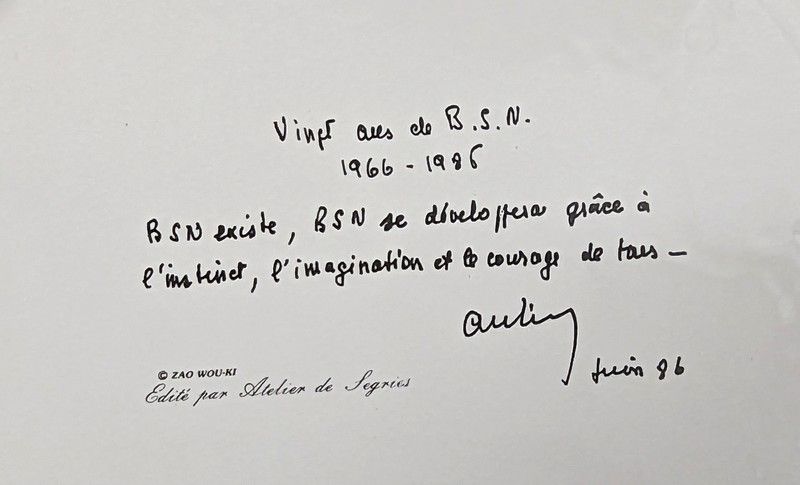 Vingt ans de B.S.N.
1966 - 1986
BSN existe, BSN se développera grâce à
l'instinct, l'imagination et le courage de tous –
Juin 86
© ZAO WOU-KI
Edité par Atelier de Segries